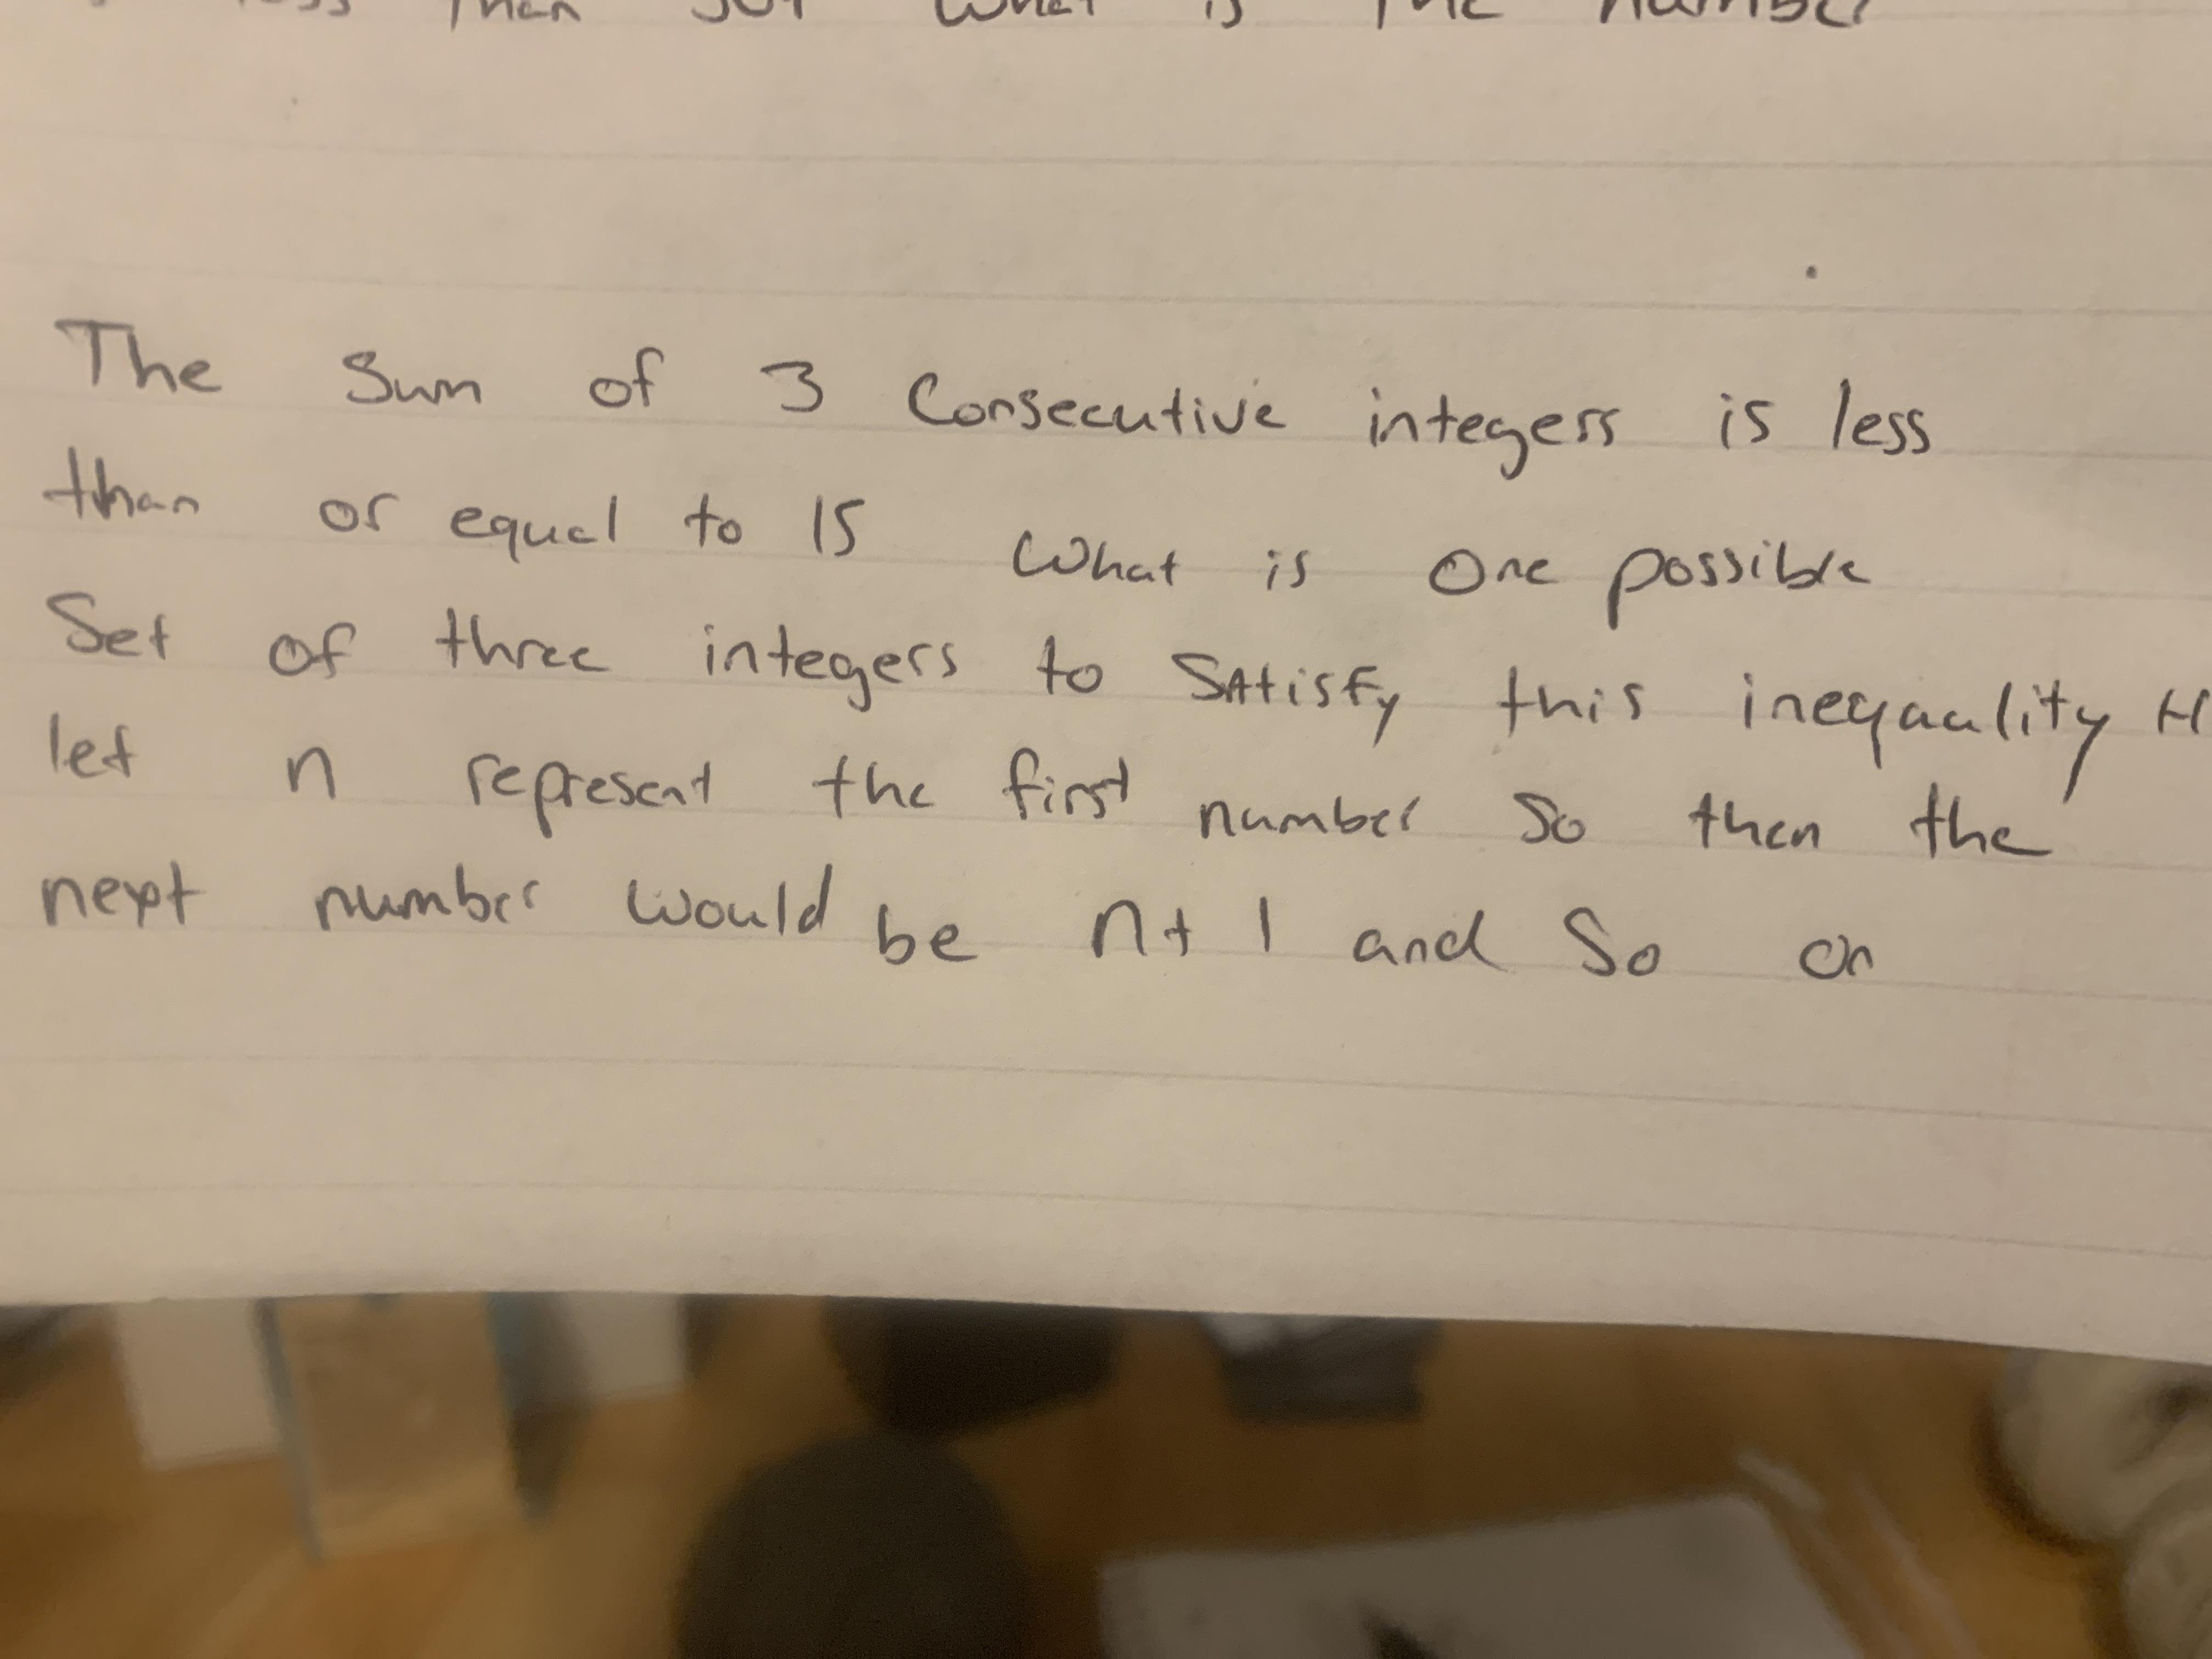 than What is the number
The Sum of 3 Consecutive integers is less
than or equal to 15 What is One possible
Set of three integers to SAtisfy this ineqaulity
let n represent the first number So then the
next number would be n+ 1 and So on